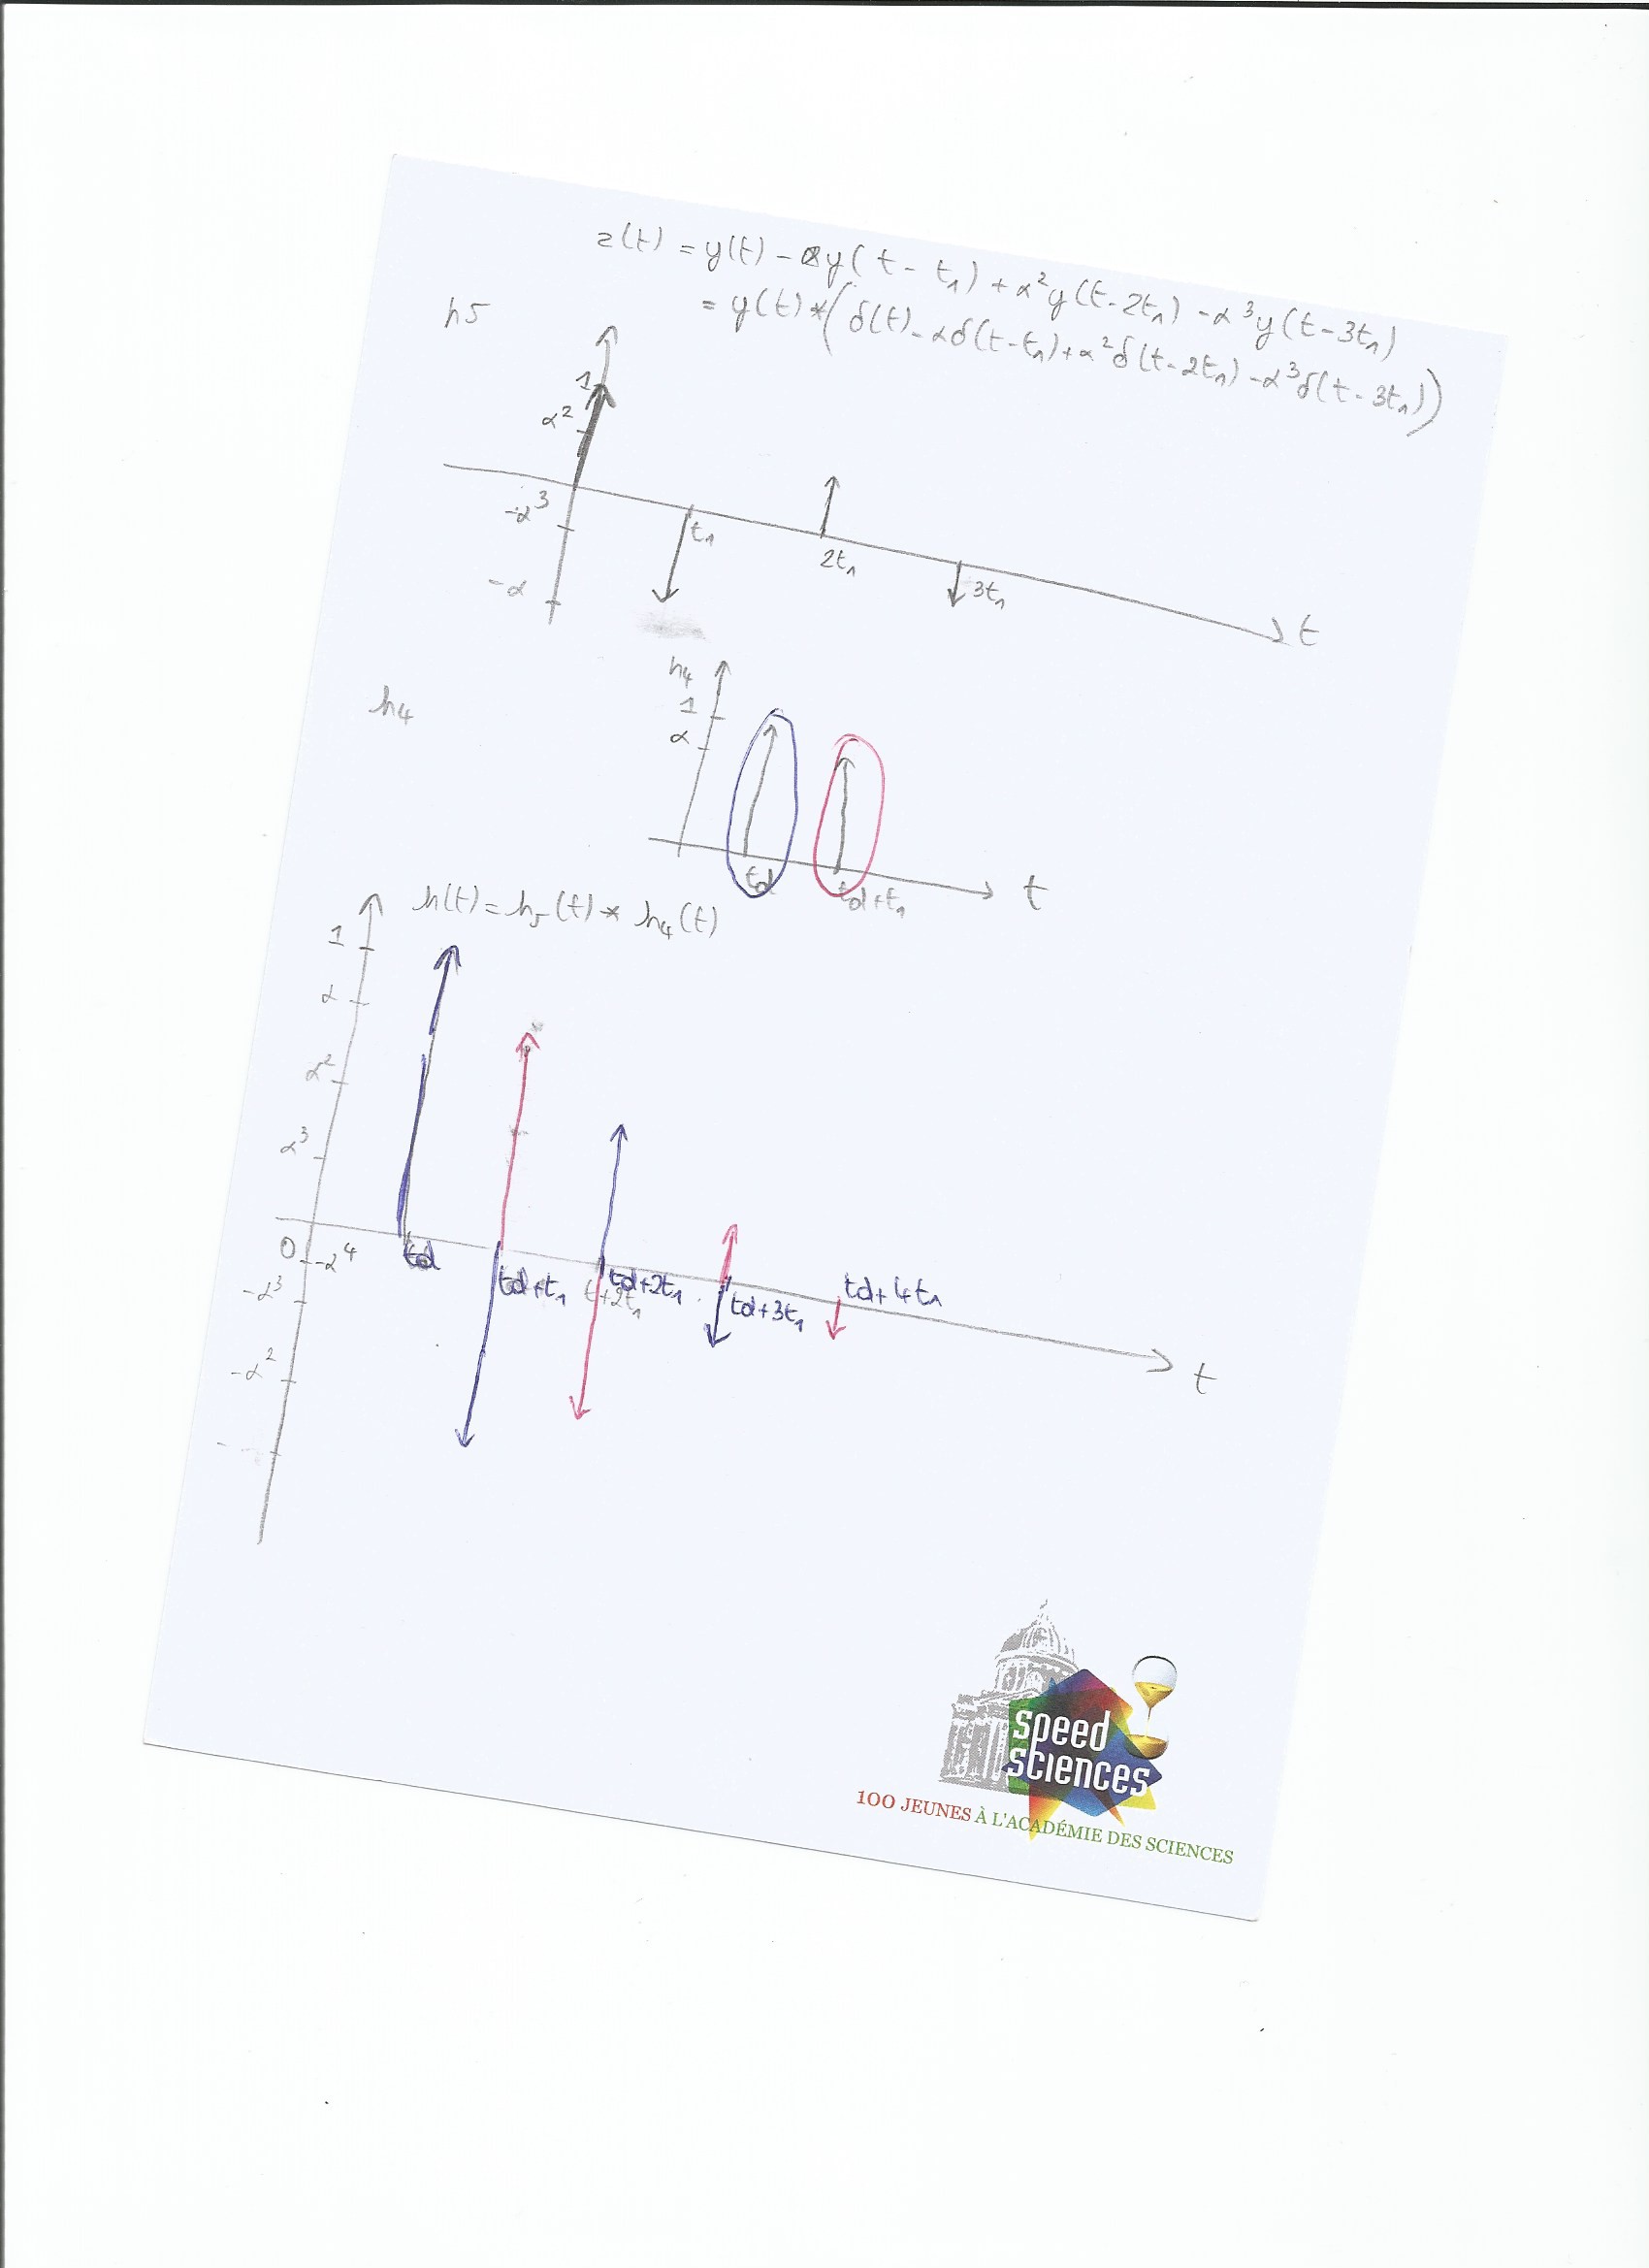 z(t) = y(t) - αy(t - t₁) + α²y(t - 2t₁) - α³y(t - 3t₁)
= y(t) * (δ(t) - αδ(t - t₁) + α²δ(t - 2t₁) - α³δ(t - 3t₁))
h5
1
α²
-α³
-α
t₁
2t₁
3t₁
t
h4
h₄
1
α
td
td+t₁
t
h(t) = h₅(t) * h₄(t)
1
α
α²
α³
0
-α⁴
-α³
-α²
td
td+t₁
td+2t₁
t+2t₁
td+3t₁
td+4t₁
t
speed
sciences
100 JEUNES À L'ACADÉMIE DES SCIENCES